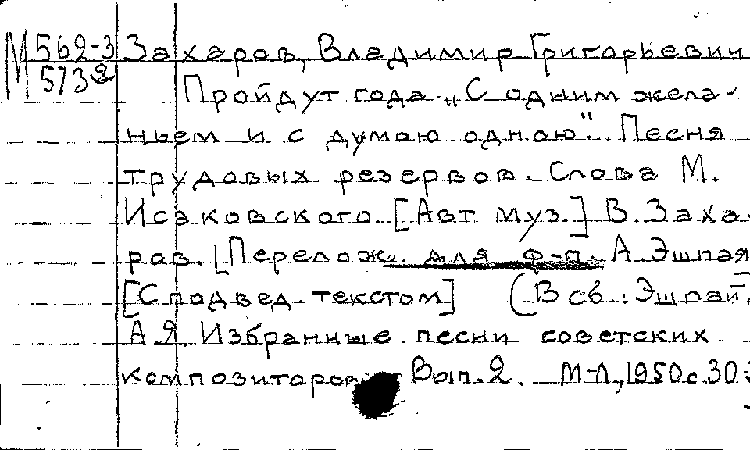 М 562-3 Захаров, Владимир Григорьевич
573 Пройдут года. „С одним жела-
ньем и с думою одною". Песня
трудовых резервов. Слова М.
Исаковского. [Авт муз.] В. Заха-
ров. [Перелож. для ф-п. А. Эшпая
[С подвед. текстом] (В сб.: Эшпай,
А.Я. Избранные песни советских
композиторов. Вып. 2. М-Л., 1950 с. 30